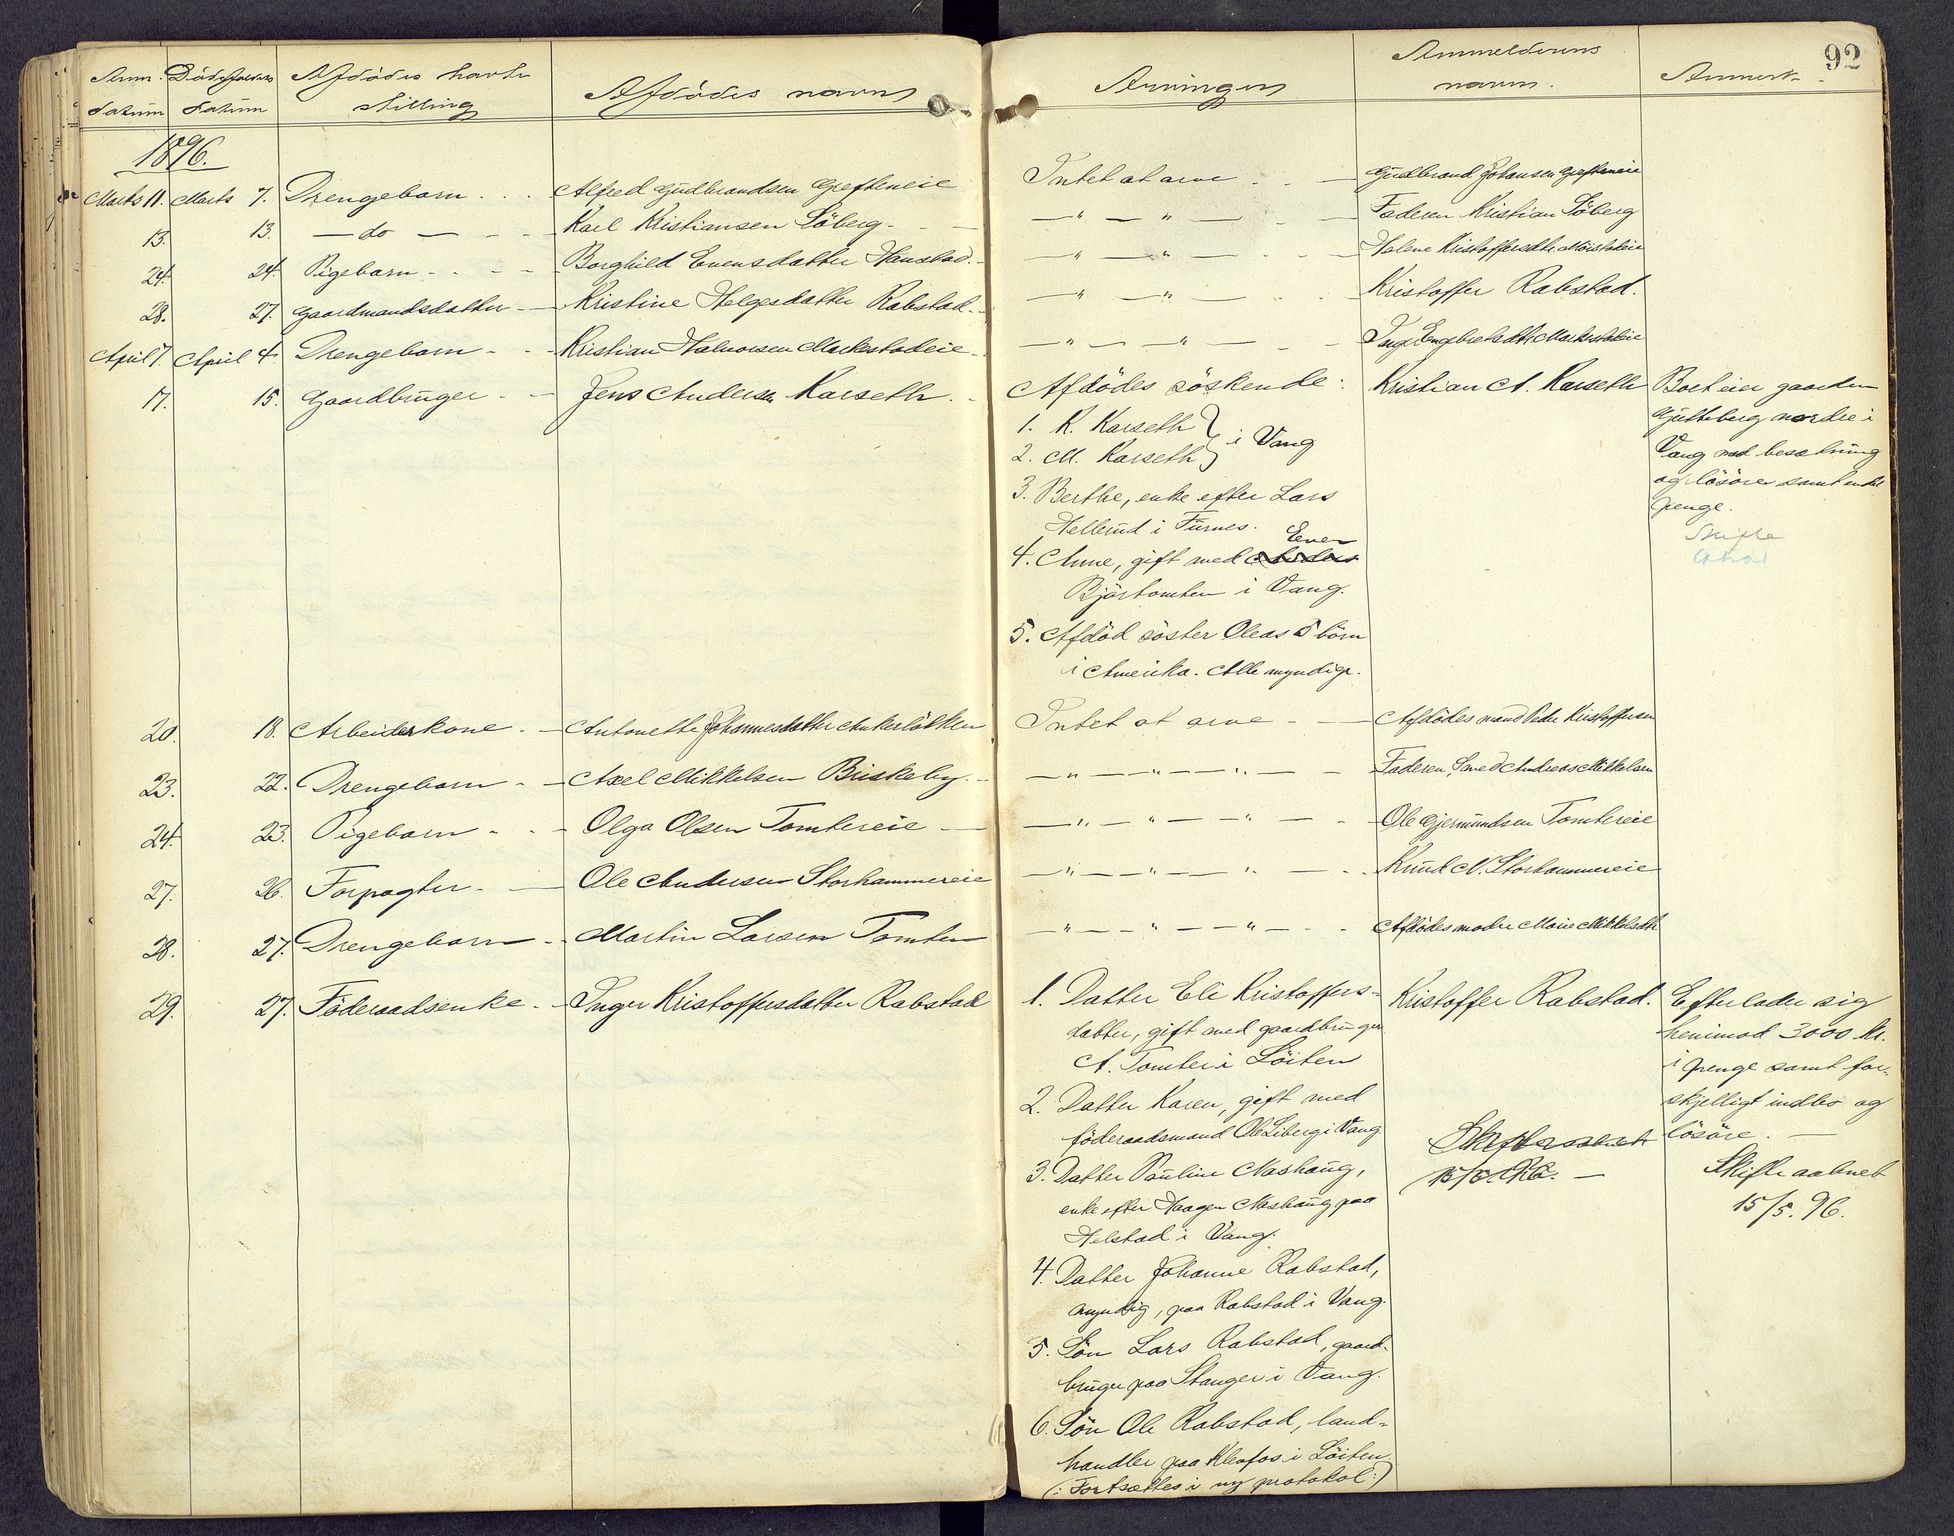 92
Anm. Datum
Dödsfaldets Datum
Afdödes havte stilling
Afdödes navn
Arvinger
Anmelderens navn.
Anmerk.
1896.
Marts 11. Marts 7. Drengebarn Alfred Gudbrandsen Grefteneie Intet at arve Gudbrand Johansen Grefteneie
13. 13. — do — Karl Kristiansen Söberg — " — " — Faderen Kristian Söberg
24. 24. Pigebarn Borghild Evensdatter Hanstad. — " — " — Helene Kristoffersdtr.
28. 27. Gaardmandsdatter Kristine Helgesdatter Rabstad — " — " — Kristoffer Rabstad.
April 7. April 4. Drengebarn Kristian Halvorsen Markestadeie — " — " — Inge Engebretsdtr. Markestadeie
17. 15. Gaardbruger Jens Andersen Karseth Afdödes söskende: Kristian A. Karseth Boet eier gaarden
1. K. Karseth
2. M. Karseth } i Vang
3. Berthe, enke efter Lars
Hellerud i Furnes.
Even
4. Anne, gift med Anders
Björtomten i Vang.
5. Afdöd söster Oleas 5 börn
i Amerika. Alle myndige.
nordre i
Vang med besætning
og lösöre samt endel
penge.
Skifte
20. 18. Arbeiderkone Antonette Johannesdatter Ankerlökken Intet at arve Afdödes mand Peder Kristoffersen
23. 22. Drengebarn Axel Mikkelsen Briskeby — " — " — " — Faderen, Smed Andreas Mikkelsen
24. 23. Pigebarn Olga Olsen Tomtereie — " — " — " — Ole Gjermundsen Tomtereie
27. 26. Forpagter Ole Andersen Storhammereie — " — " — " — Knud N. Storhammereie
28. 27. Drengebarn Martin Larsen Tomten — " — " — " — Afdödes moder Marie Mikkelsdtr.
29. 27. Föderaadsenke Inger Kristoffersdatter Rabstad 1. Datter Eli Kristoffers- Kristoffer Rabstad. Efterlader sig
datter, gift med gaardbruger
A. Tomter i Löiten
2. Datter Karen, gift med
föderaadsmand Ole Liberg i Vang
3. Datter Pauline Mashaug,
enke efter Haagen Mashaug paa
Helstad i Vang.
4. Datter Johanne Rabstad,
myndig, paa Rabstad i Vang.
5. Sön Lars Rabstad, gaard-
bruger paa Stanger i Vang.
6. Sön Ole Rabstad, land-
handler paa Klevfos i Löiten
(: Fortsættes i ny protokol :)
15/5. 96.
henimod 3000 kr.
i penge samt for-
skjelligt indbo og
lösöre. —
Skifte aabnet
15/5. 96.